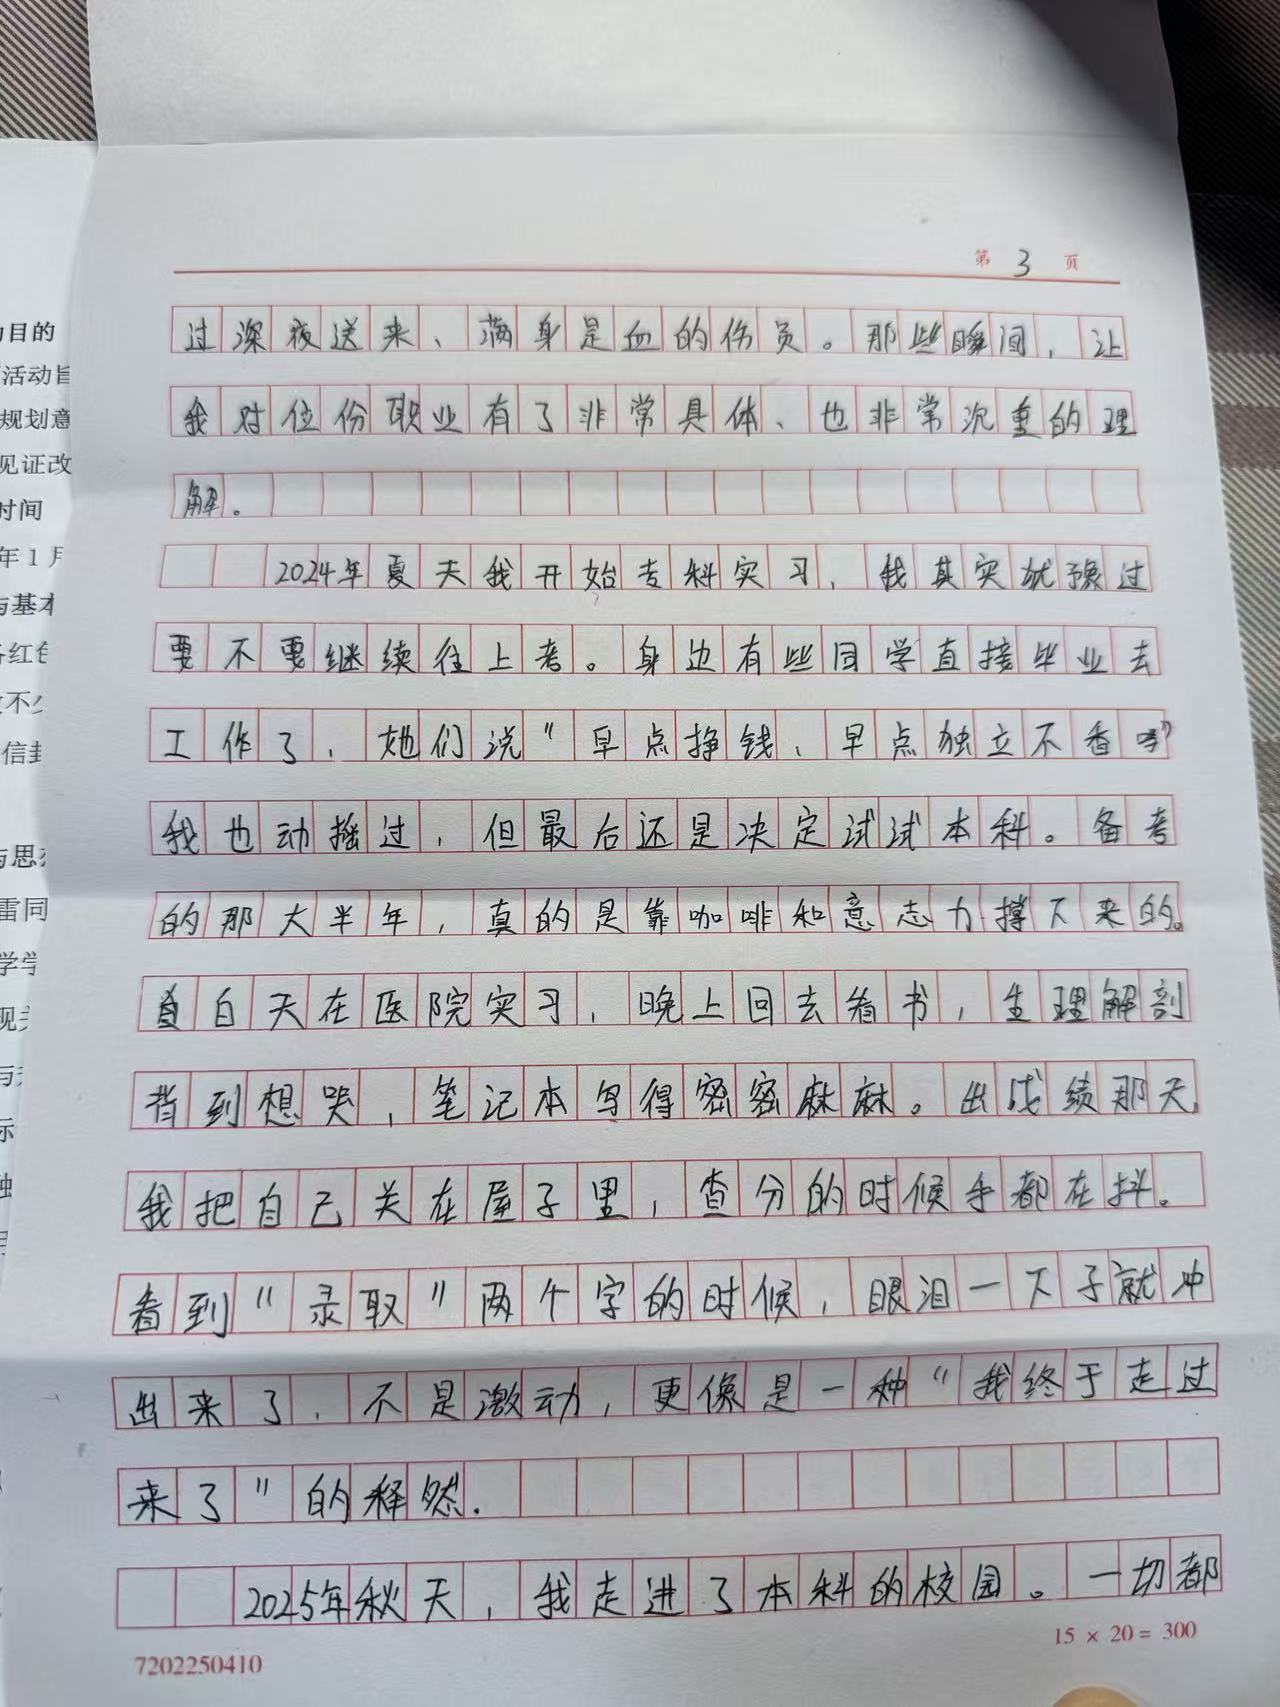 第 3 页
过深夜送来、满身是血的伤员。那些瞬间，让
我对位份职业有了非常具体、也非常沉重的理
解。
2024年夏天我开始专科实习，我其实犹豫过
要不要继续往上考。身边有些同学直接毕业去
工作了，她们说"早点挣钱、早点独立不香吗"
我也动摇过，但最后还是决定试试本科。备考
的那大半年，真的是靠咖啡和意志力撑下来的。
白天在医院实习，晚上回去看书，生理解剖
背到想哭，笔记本写得密密麻麻。出成绩那天，
我把自己关在屋子里，查分的时候手都在抖。
看到"录取"两个字的时候，眼泪一下子就冲
出来了，不是激动，更像是一种"我终于走过
来了"的释然.
2025年秋天，我走进了本科的校园。一切都
15 × 20 = 300
7202250410
目的
活动旨
规划意
见证改
时间
年 1 月
与基本
红色
不少
信封
与思
雷同
学学